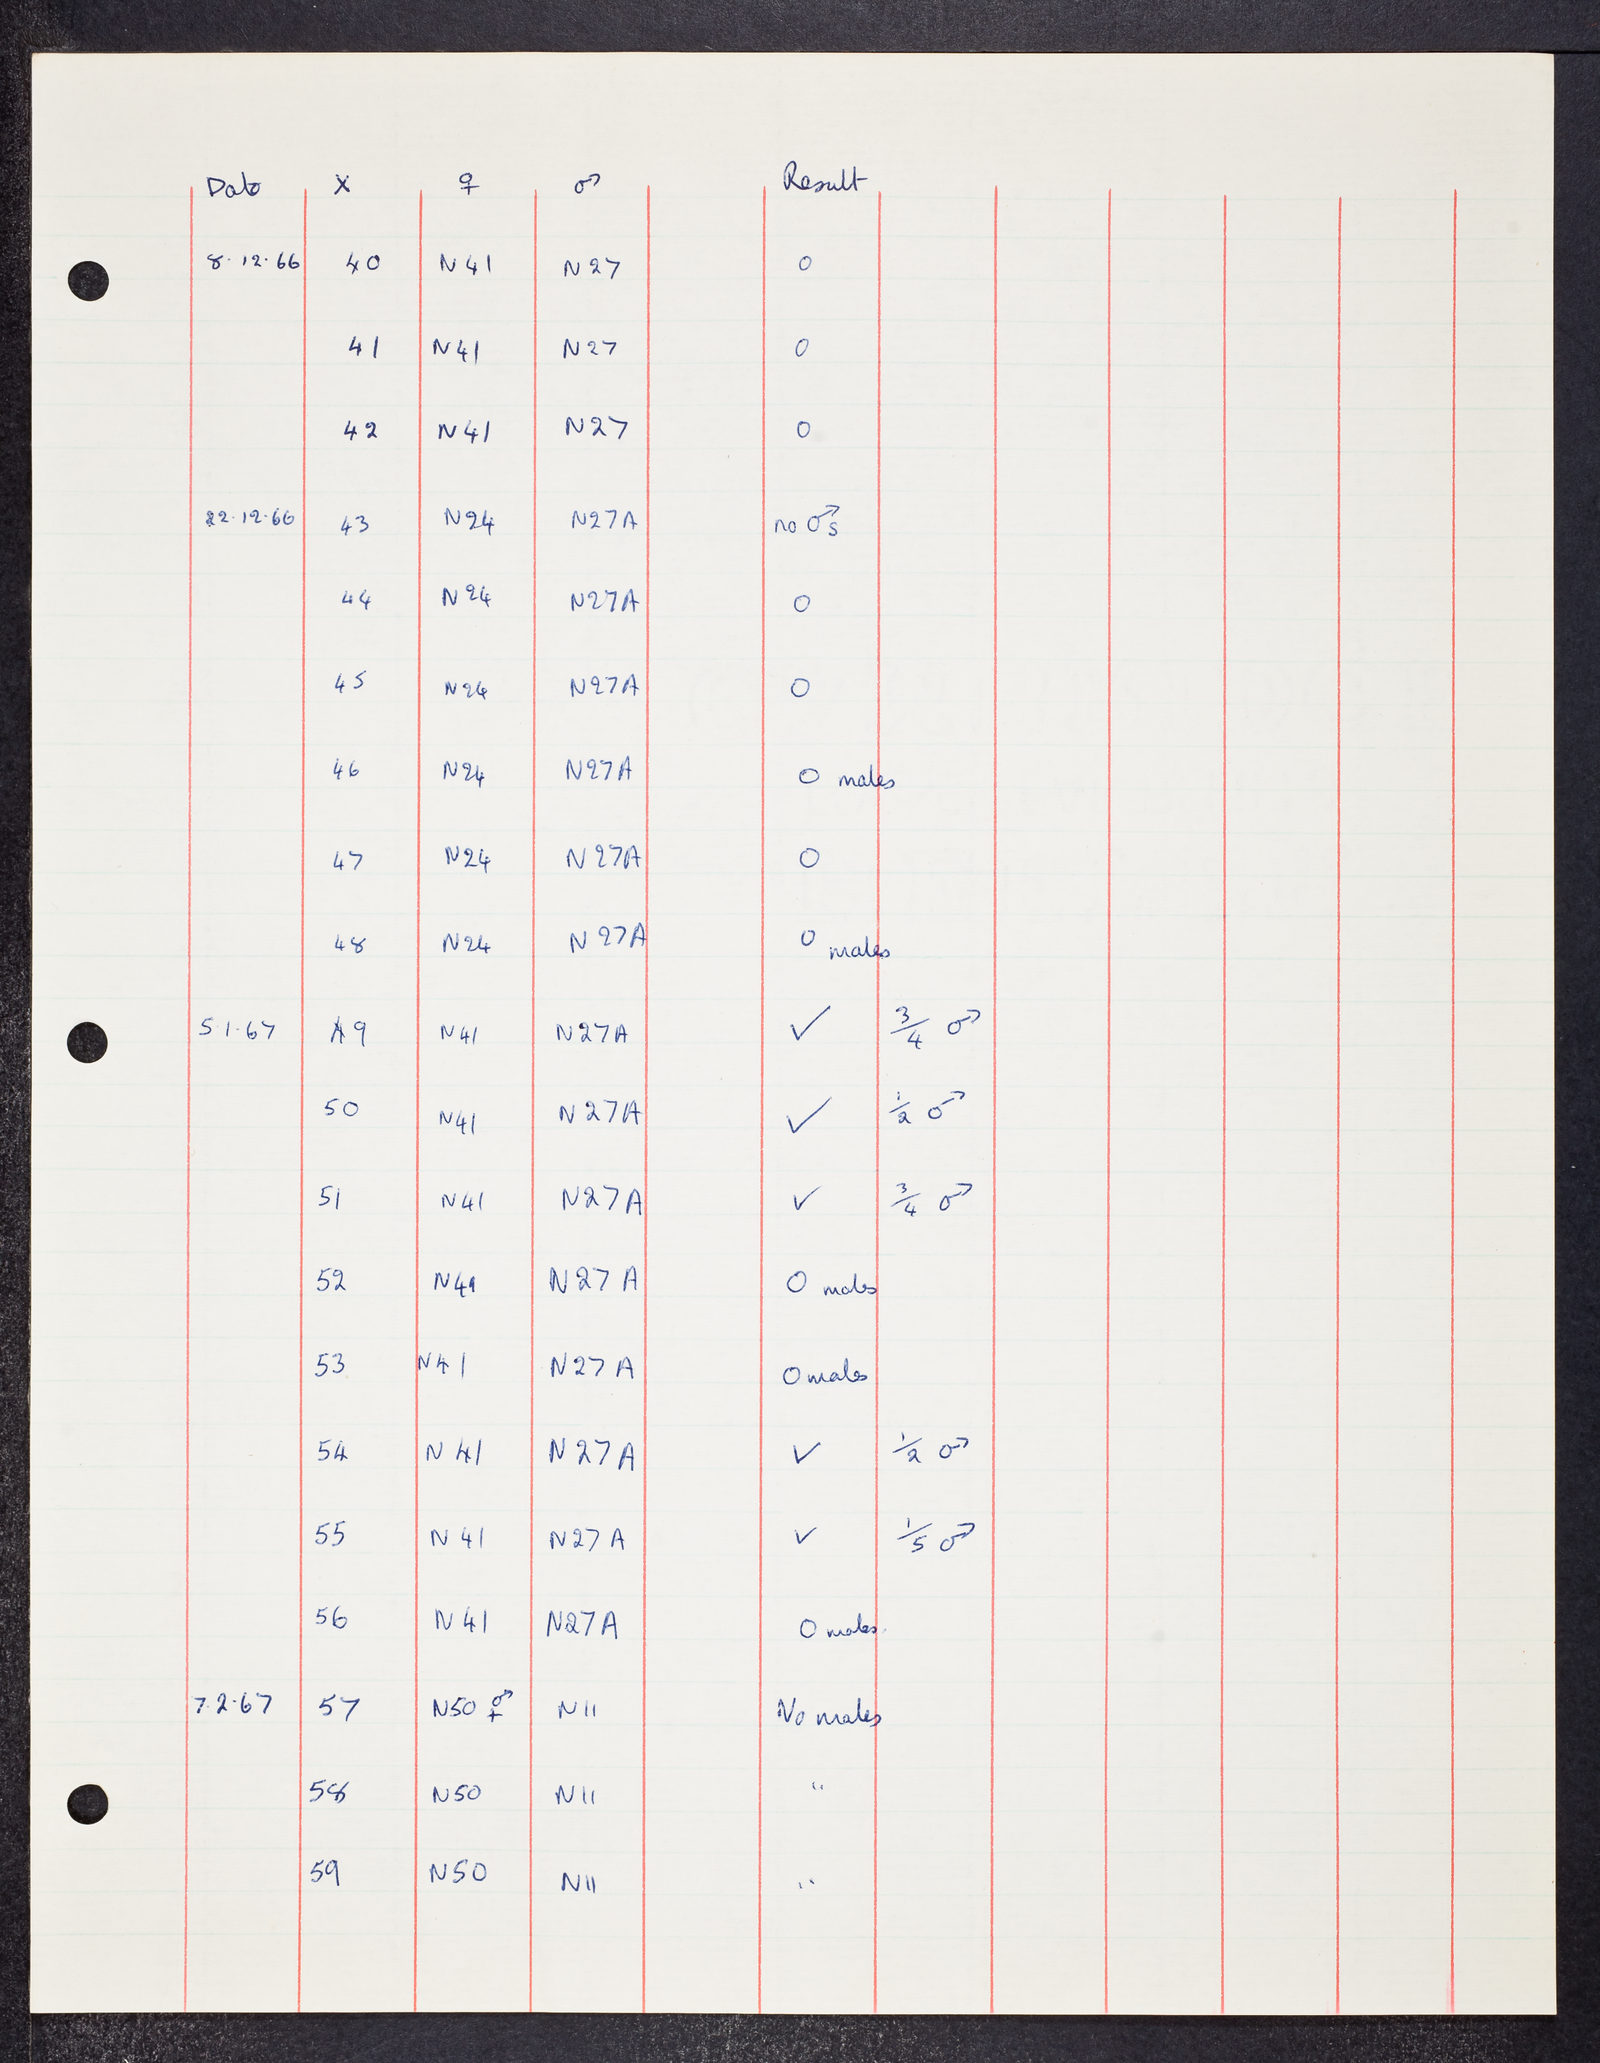 Date X ♀ ♂ Result
8.12.66 40 N41 N27 0
41 N41 N27 0
42 N41 N27 0
22.12.66 43 N24 N27A no ♂s
44 N24 N27A 0
45 N24 N27A 0
46 N24 N27A 0 males
47 N24 N27A 0
48 N24 N27A 0 males
5.1.67 49 N41 N27A ✓ 3/4 ♂
50 N41 N27A ✓ 1/2 ♂
51 N41 N27A ✓ 3/4 ♂
52 N41 N27A 0 males
53 N41 N27A 0 males
54 N41 N27A ✓ 1/2 ♂
55 N41 N27A ✓ 1/5 ♂
56 N41 N27A 0 males
7.2.67 57 N50 ⚥ N11 No males
58 N50 N11 "
59 N50 N11 "